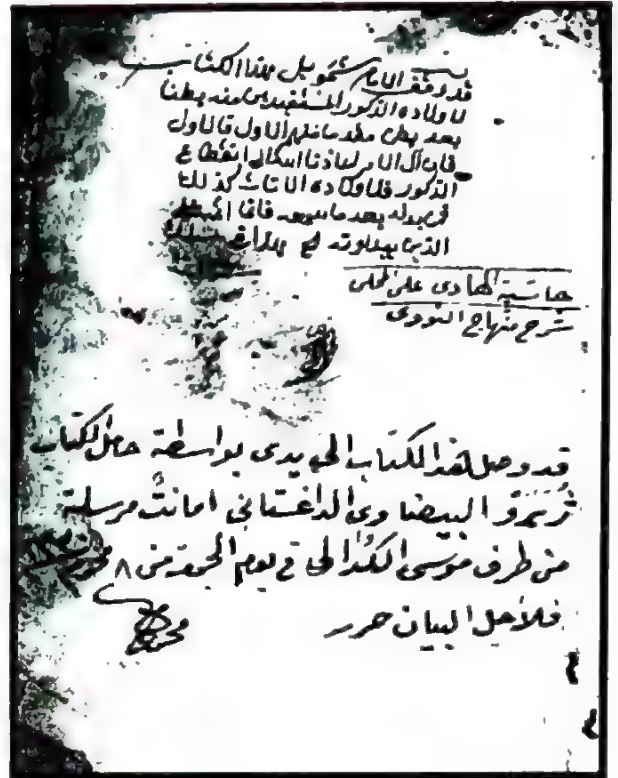 قد وقف الامام شمويل هذا الكتاب
لاولاده الذكور المستفيدين منه بطنا
بعد بطن مقدما منهم الاول فالاول
فان آل الامر لعياذنا الى انقطاع
الذكور فلاولاده الاناث كذلك
فمن بدله بعد ما سمعه فانما اثمه على
الذين يبدلونه
حاشية على المحلى
شرح منهاج النووى
قد وصل هذا الكتاب الى يدى بواسطة حامل الكتاب
البيضاوى الداغستانى امانت مرسلة
من طرف موسى فى يوم الجمعة من ٨ محرم
فلاجل البيان حرر